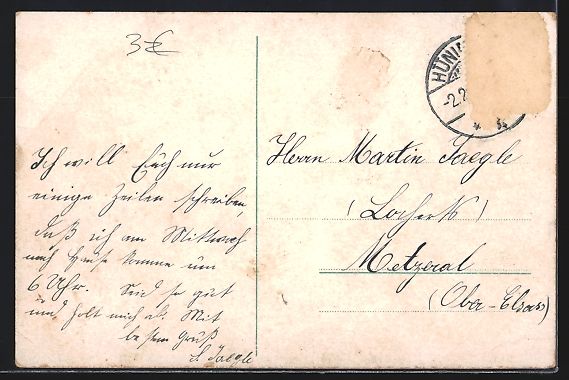 3 €
HÜNI
-2.2
Ich will Euch nur
einige Zeilen schreiben,
daß ich am Mittwoch
nach Hause komme um
6 Uhr. Seid so gut
und holt mich ab. Mit
bestem Gruß
S. Jaegle
Herrn Martin Jaegle
(Locherk)
Metzeral
(Ober-Elsass)